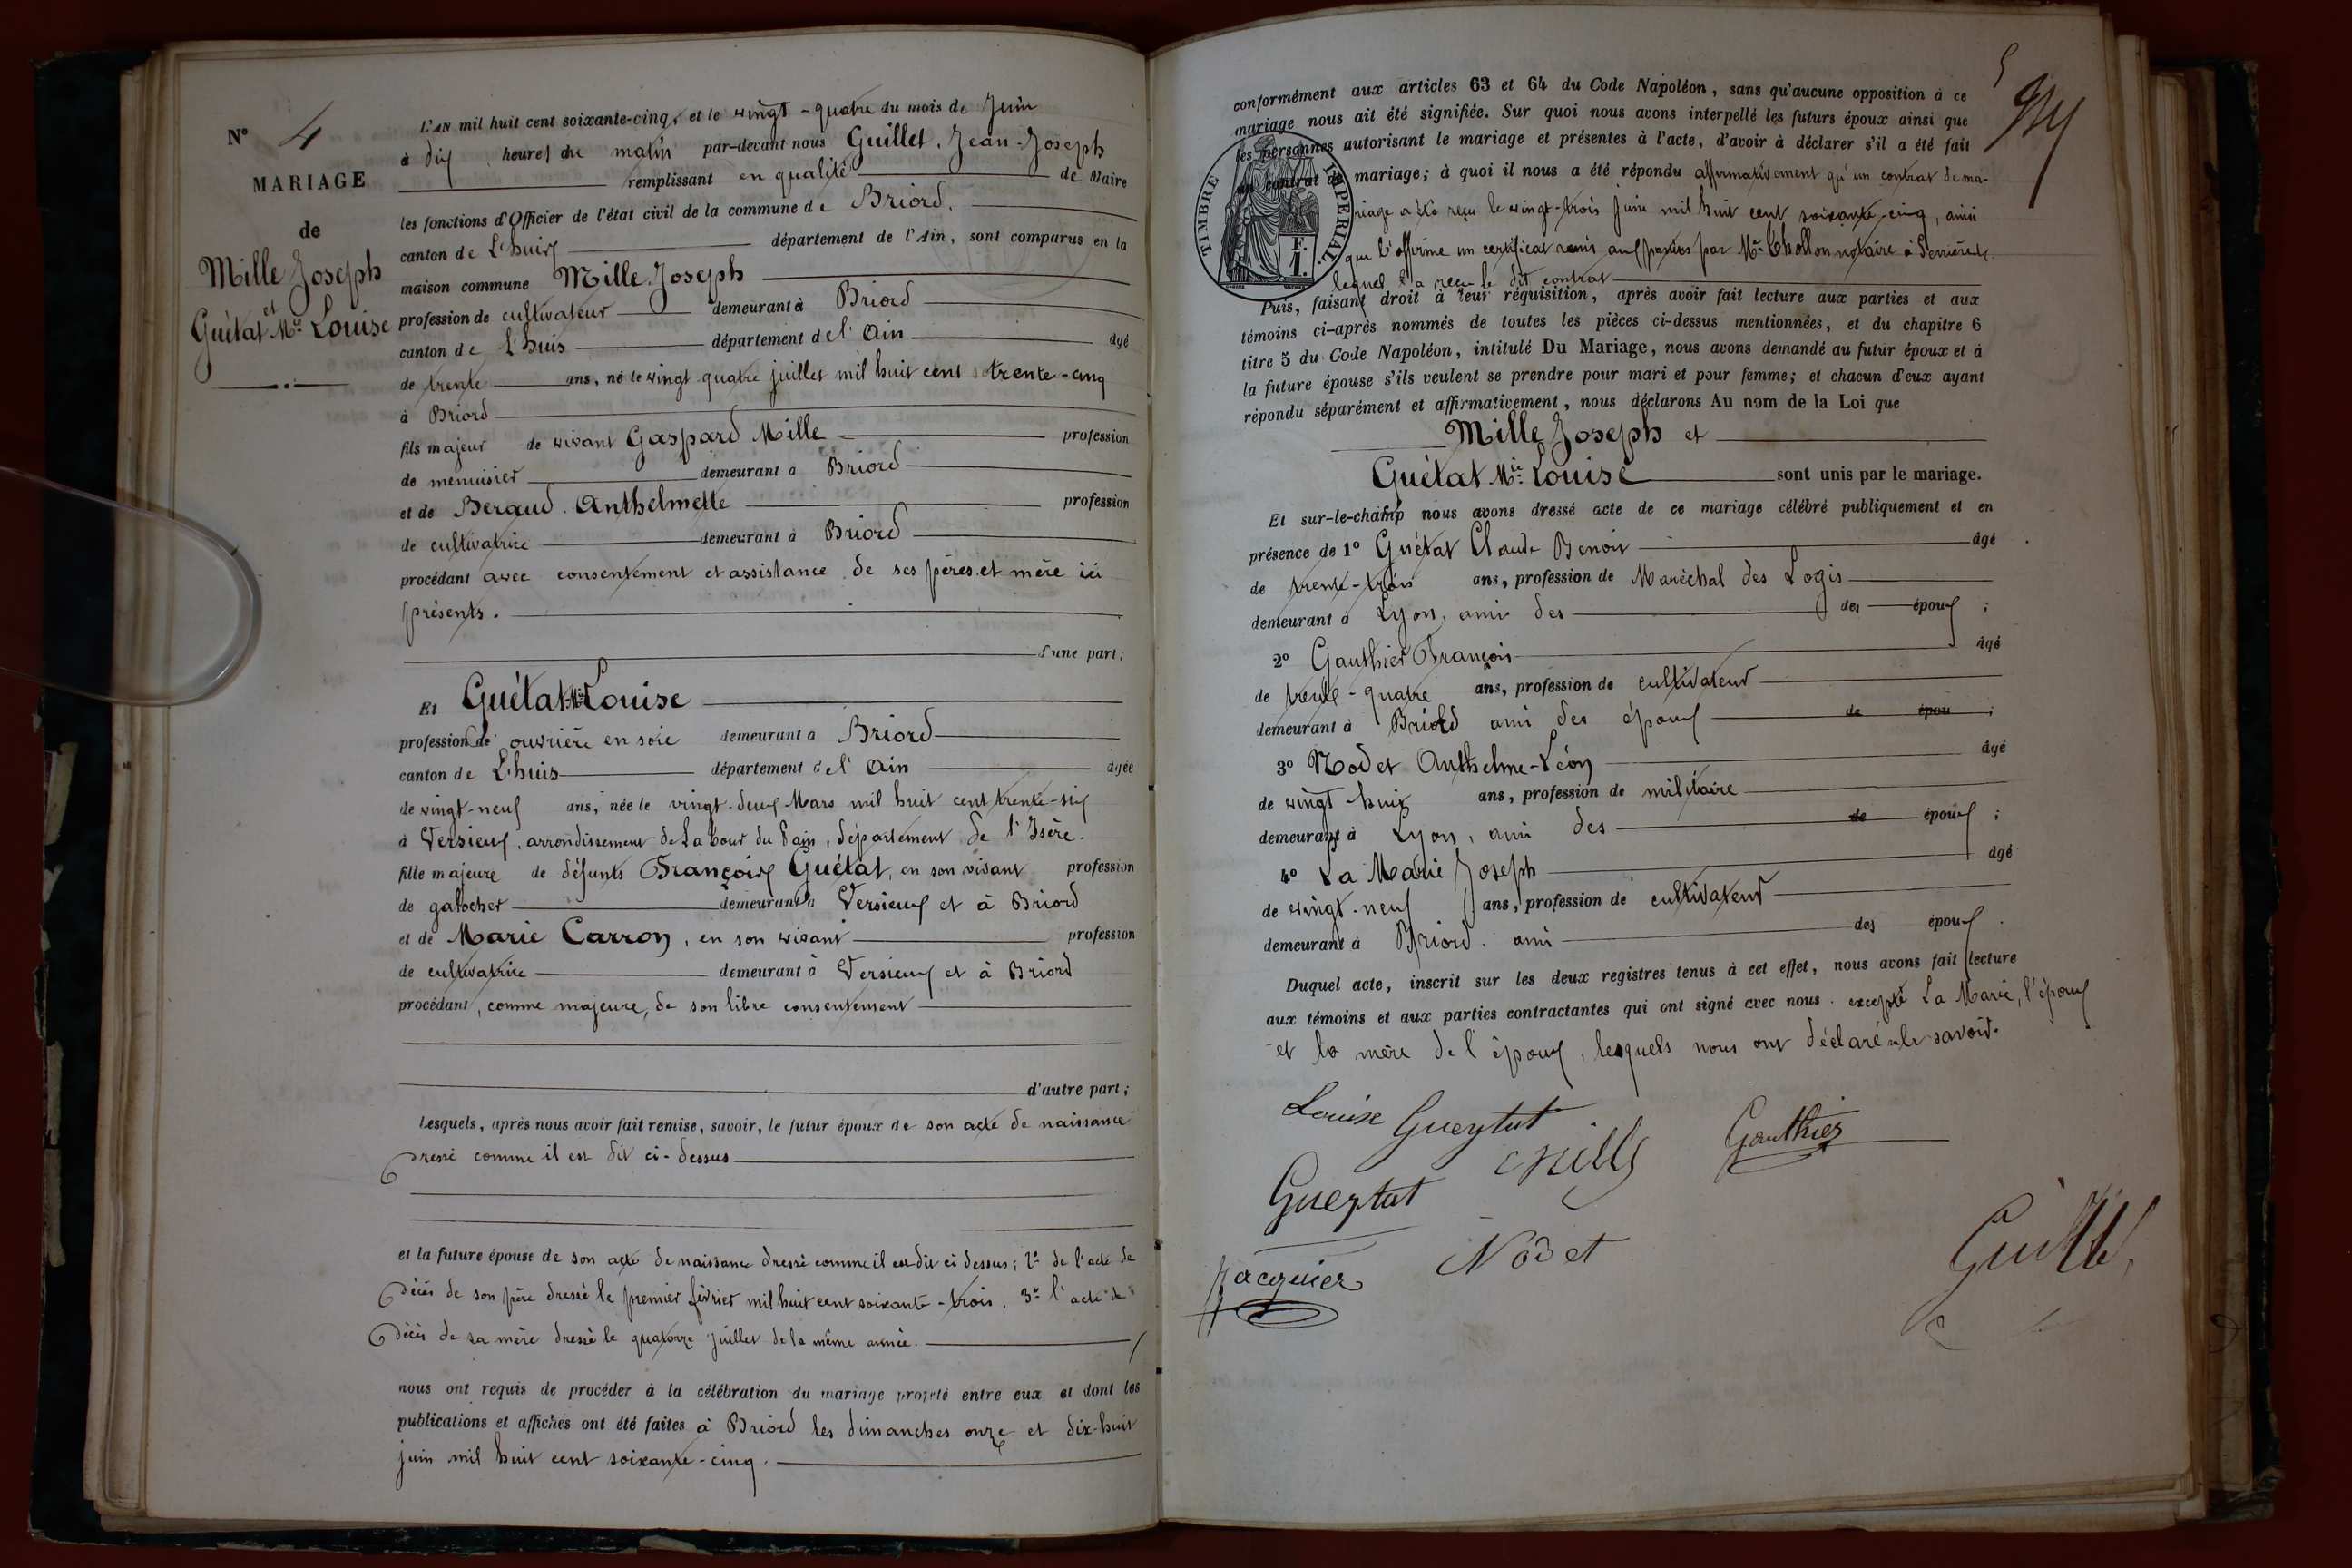 N° 4
MARIAGE
de
Mille Joseph
et
Guétat Mie Louise
L'AN mil huit cent soixante-cinq, et le vingt-quatre du mois de Juin
à dix heures du matin par-devant nous Guillet, Jean-Joseph
remplissant en qualité de Maire
les fonctions d'Officier de l'état civil de la commune de Briord,
canton de L'huis département de l'Ain, sont comparus en la
maison commune Mille Joseph
profession de cultivateur demeurant à Briord
canton de L'huis département de l'Ain âgé
de trente ans, né le vingt quatre juillet mil huit cent trente-cinq
à Briord
fils majeur de vivant Gaspard Mille profession
de menuisier demeurant à Briord
et de Beraud Anthelmette profession
de cultivatrice demeurant à Briord
procédant avec consentement et assistance de ses pères et mère ici
présents.
d'une part;
Et Guétat Mie Louise
profession de ouvrière en soie demeurant à Briord
canton de L'huis département de l'Ain âgée
de vingt-neuf ans, née le vingt-deux Mars mil huit cent trente-six
à Versieux, arrondissement de La Tour du Pain, département de l'Isère.
fille majeure de défunts François Guétat, en son vivant profession
de galocher demeurant à Versieux et à Briord
et de Marie Carron, en son vivant profession
de cultivatrice demeurant à Versieux et à Briord
procédant, comme majeure, de son libre consentement
d'autre part;
Lesquels, après nous avoir fait remise, savoir, le futur époux de son acte de naissance
dressé comme il est dit ci-dessus
et la future épouse de son acte de naissance dressé comme il est dit ci dessus; 2° de l'acte de
décès de son père dressé le premier février mil huit cent soixante-trois, 3° l'acte de
décès de sa mère dressé le quatorze juillet de la même année.
nous ont requis de procéder à la célébration du mariage projeté entre eux et dont les
publications et affiches ont été faites à Briord les dimanches onze et dix-huit
juin mil huit cent soixante-cinq.
conformément aux articles 63 et 64 du Code Napoléon, sans qu'aucune opposition à ce
mariage nous ait été signifiée. Sur quoi nous avons interpellé les futurs époux ainsi que
les personnes autorisant le mariage et présentes à l'acte, d'avoir à déclarer s'il a été fait
un contrat de mariage; à quoi il nous a été répondu affirmativement qu'un contrat de ma-
riage a été reçu le vingt-trois juin mil huit cent soixante-cinq, ainsi
que l'affirme un certificat remis aux parties par Me Chollon notaire à
lequel l'a reçu le dit contrat
TIMBRE IMPERIAL
F.
1.
Puis, faisant droit à leur réquisition, après avoir fait lecture aux parties et aux
témoins ci-après nommés de toutes les pièces ci-dessus mentionnées, et du chapitre 6
titre 5 du Code Napoléon, intitulé Du Mariage, nous avons demandé au futur époux et à
la future épouse s'ils veulent se prendre pour mari et pour femme; et chacun d'eux ayant
répondu séparément et affirmativement, nous déclarons Au nom de la Loi que
Mille Joseph et
Guétat Mie Louise sont unis par le mariage.
Et sur-le-champ nous avons dressé acte de ce mariage célébré publiquement et en
présence de 1° Guétat Claude Benoit âgé
de trente-trois ans, profession de Maréchal des Logis
demeurant à Lyon, ami des des époux;
2° Gauthier François âgé
de trente-quatre ans, profession de cultivateur
demeurant à Briord ami des époux de épou;
3° Nodet Anthelme-Léon âgé
de vingt-huit ans, profession de militaire
demeurant à Lyon, ami des de époux;
4° La Marie Joseph âgé
de vingt-neuf ans, profession de cultivateur
demeurant à Briord. ami des époux.
Duquel acte, inscrit sur les deux registres tenus à cet effet, nous avons fait lecture
aux témoins et aux parties contractantes qui ont signé avec nous. excepté La Marie, l'époux
et la mère de l'époux, lesquels nous ont déclaré ne le savoir.
Louise Gueytat
Mille
Gauthier
Gueytat
Nodet
Jacquier
Guillet